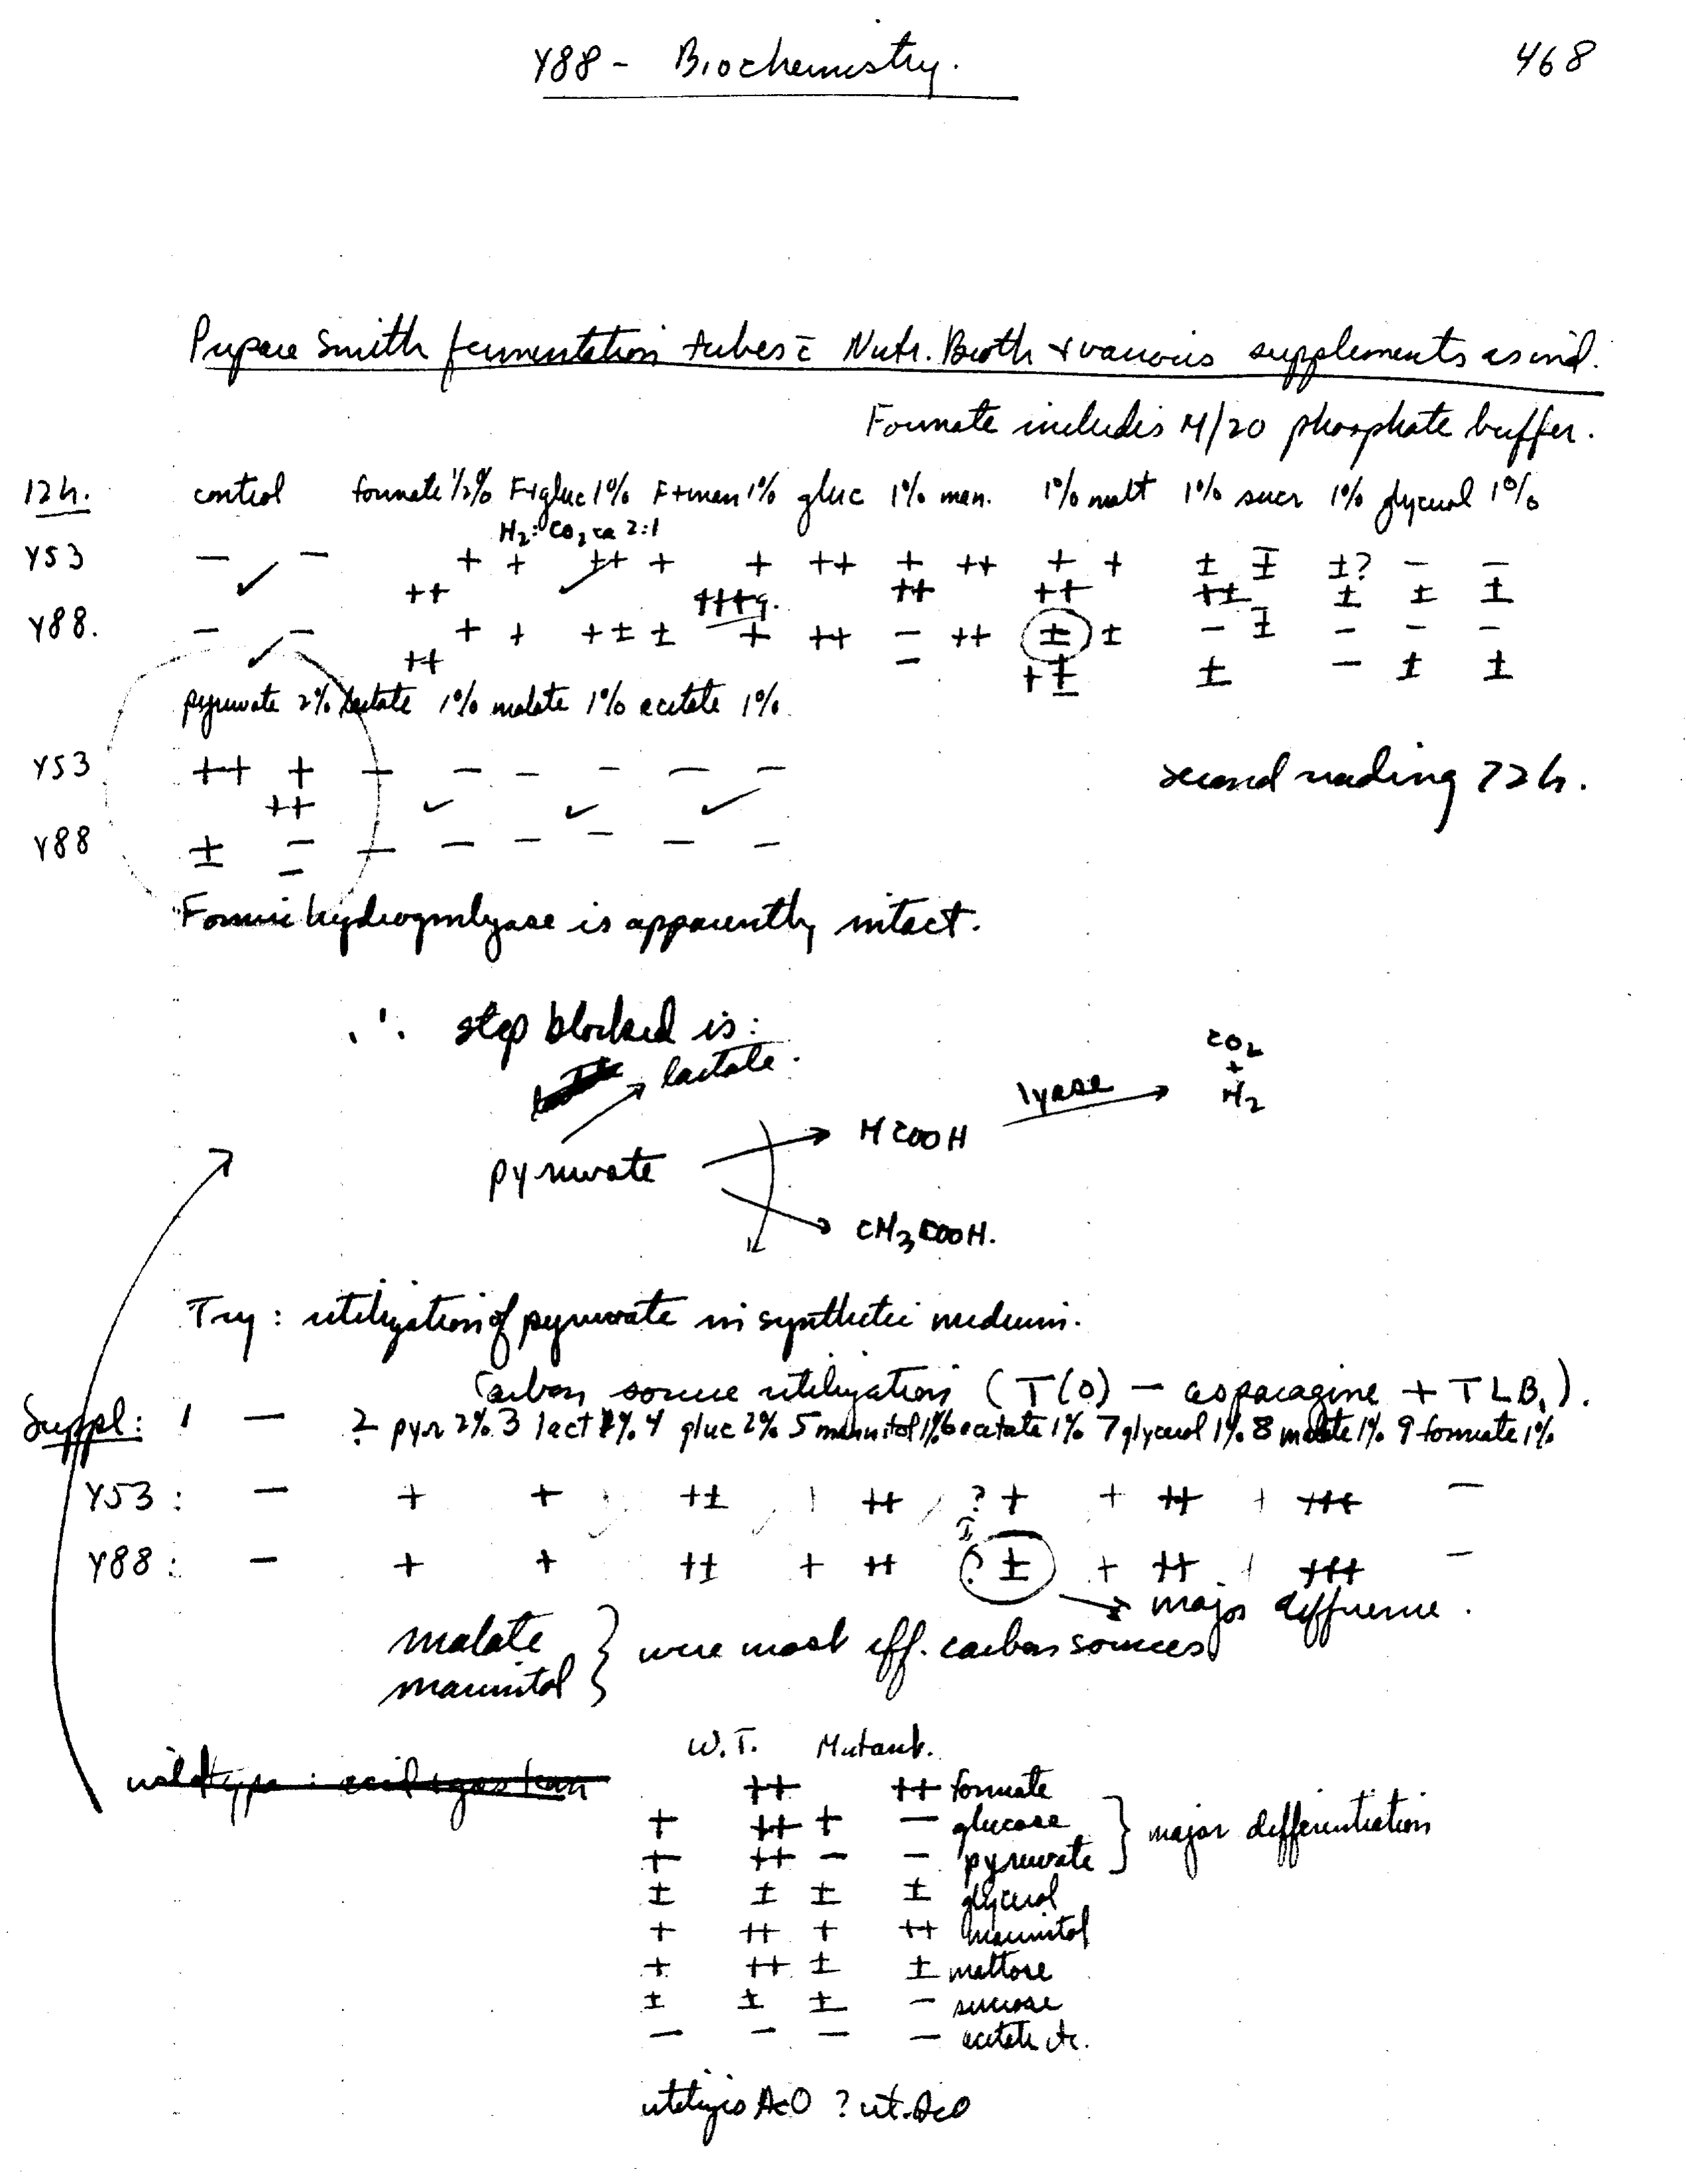 Y88 - Biochemistry. 468
Prepare Smith fermentation tubes c̄ Nutr. Broth + various supplements as ind.
Formate includes M/20 phosphate buffer.
12 h. control formate 1/2% F+gluc 1% F+man 1% gluc 1% man. 1% malt 1% sucr 1% glycerol 1%
H2:CO2 ca 2:1
Y53 — — + + ++ + + ++ + ++ + + ± ± ±? — —
✓ ++ +++g. ++ ++ +± ± ± ±
Y88. — — + + +± ± + ++ — ++ ± ± — ± — — —
✓ ++ — +± ± — ± ±
pyruvate 2% lactate 1% malate 1% acetate 1%
Y53 ++ + — — — — — —
second reading 72 h.
++ ✓ ✓ ✓
Y88 ± — — — — — — —
—
Formic hydrogenlyase is apparently intact.
∴ step blocked is:
lactate.
CO2
+
H2
lyase
HCOOH
pyruvate
CH3COOH.
Try: utilization of pyruvate in synthetic medium.
Carbon source utilization (T(0) — asparagine + TLB1).
Suppl: 1 — 2 pyr 2% 3 lact 1% 4 gluc 2% 5 mannitol 1% 6 acetate 1% 7 glycerol 1% 8 malate 1% 9 formate 1%
Y53: — + + +± ++ ? + + ++ + +++ —
Y88: — + + +± + ++ ? ± + ++ +++ —
major difference.
malate
mannitol } were most eff. carbon sources
W.T. Mutant.
wild type: acid + gas from
++ ++ formate
+ ++ + — glucose
+ ++ — — pyruvate } major differentiation
± ± ± ± glycerol
+ ++ + ++ mannitol
+ ++ ± ± maltose
± ± ± — sucrose
— — — — acetate etc.
utilizes AcO ? ut. AcO